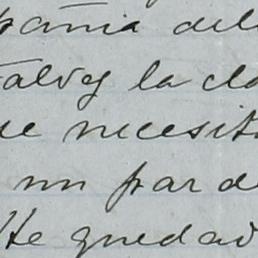 pañia del
talvez la cla
ue necesit
un par d
Ite quedad